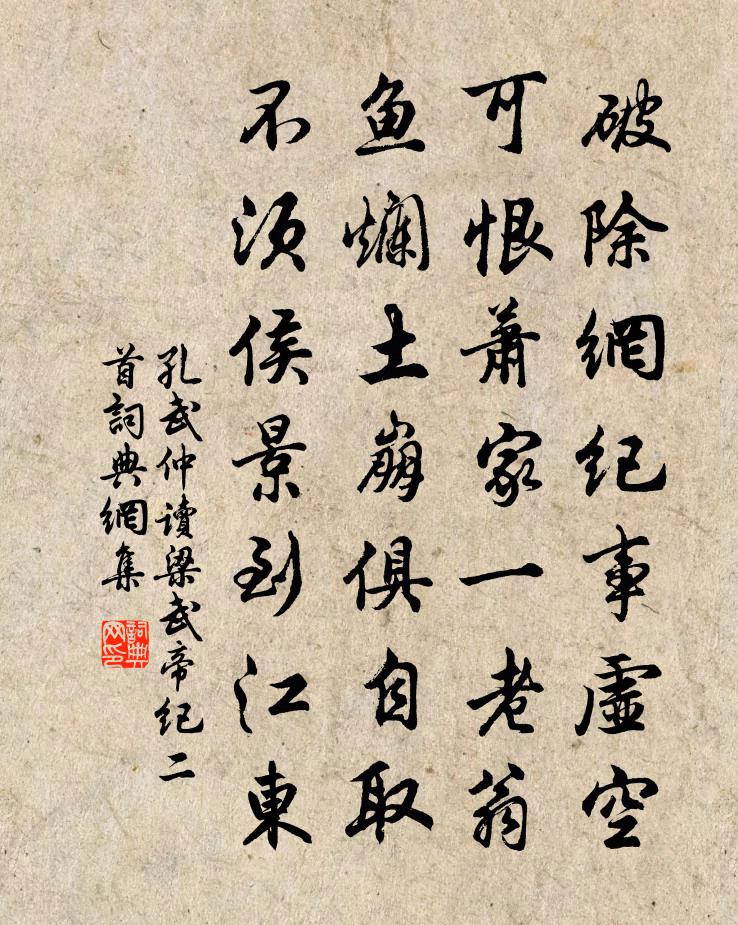 破除網紀事虛空
可恨蕭家一老翁
鱼爛土崩俱自取
不須侯景到江東
孔武仲讀梁武帝纪二
首詞典網集
詞典
网印